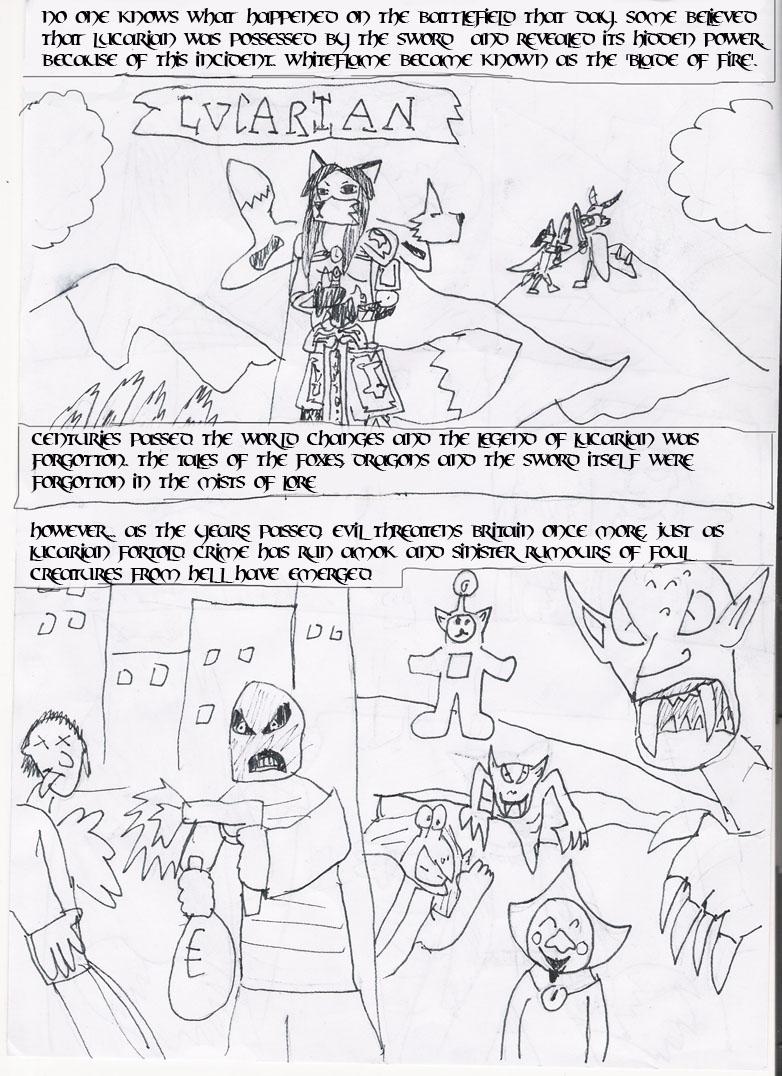 NO ONE KNOWS WHAT HAPPENED ON THE BATTLEFIELD THAT DAY. SOME BELIEVED
THAT LUCARIAN WAS POSSESSED BY THE SWORD AND REVEALED ITS HIDDEN POWER
BECAUSE OF THIS INCIDENT. WHITEFLAME BECAME KNOWN AS THE 'BLADE OF FIRE'.
LUCARIAN
CENTURIES PASSED, THE WORLD CHANGES AND THE LEGEND OF LUCARIAN WAS
FORGOTTON. THE TALES OF THE FOXES, DRAGONS AND THE SWORD ITSELF WERE
FORGOTTON IN THE MISTS OF LORE
HOWEVER... AS THE YEARS PASSED, EVIL THREATENS BRITAIN ONCE MORE, JUST AS
LUCARIAN FORTOLD. CRIME HAS RUN AMOK AND SINISTER RUMOURS OF FOUL
CREATURES FROM HELL HAVE EMERGED.
£